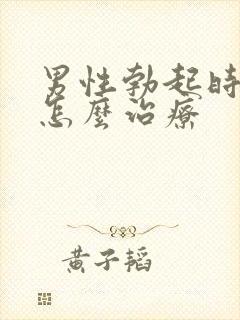 男性勃起時
怎麼治療
黃子韜